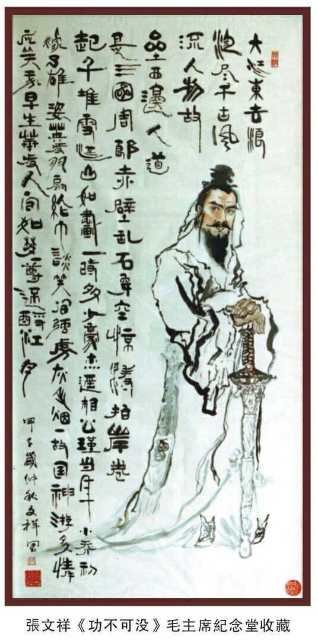 大江東去浪
淘尽千古風
流人物故
壘西邊人道
是三國周郎赤壁乱石穿空惊濤拍岸卷
起千堆雪江山如畫一時多少豪杰遥想公瑾当年小乔初
嫁了雄姿英发羽扇纶巾談笑间虜灰飞烟灭故国神游多情
应笑我早生華发人间如梦一尊還酹江月
甲子歲仲秋文祥写
張文祥《功不可没》毛主席紀念堂收藏